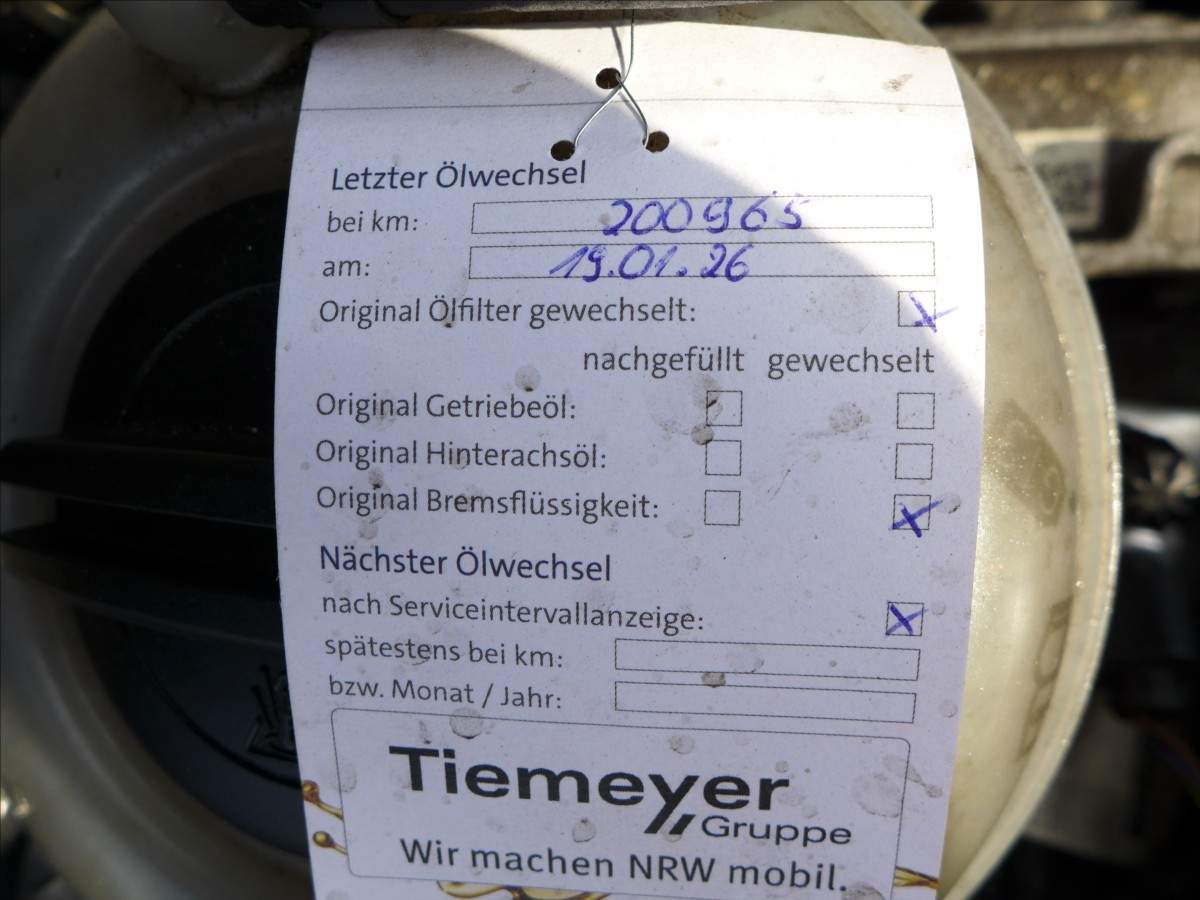 Letzter Ölwechsel
bei km: 200965
am: 19.01.26
Original Ölfilter gewechselt: x
nachgefüllt gewechselt
Original Getriebeöl:
Original Hinterachsöl:
Original Bremsflüssigkeit: x
Nächster Ölwechsel
nach Serviceintervallanzeige: x
spätestens bei km:
bzw. Monat / Jahr:
Tiemeyer
Gruppe
Wir machen NRW mobil.